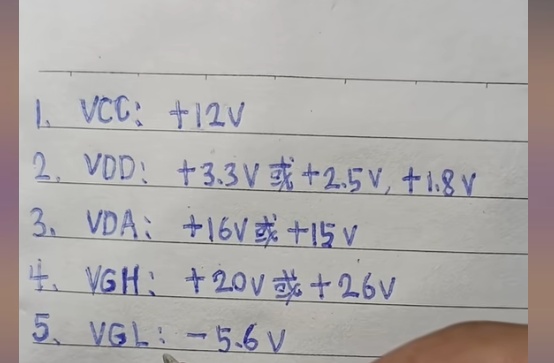 1. VCC: +12V
2. VDD: +3.3V或+2.5V, +1.8V
3. VDA: +16V或+15V
4. VGH: +20V或+26V
5. VGL: -5.6V